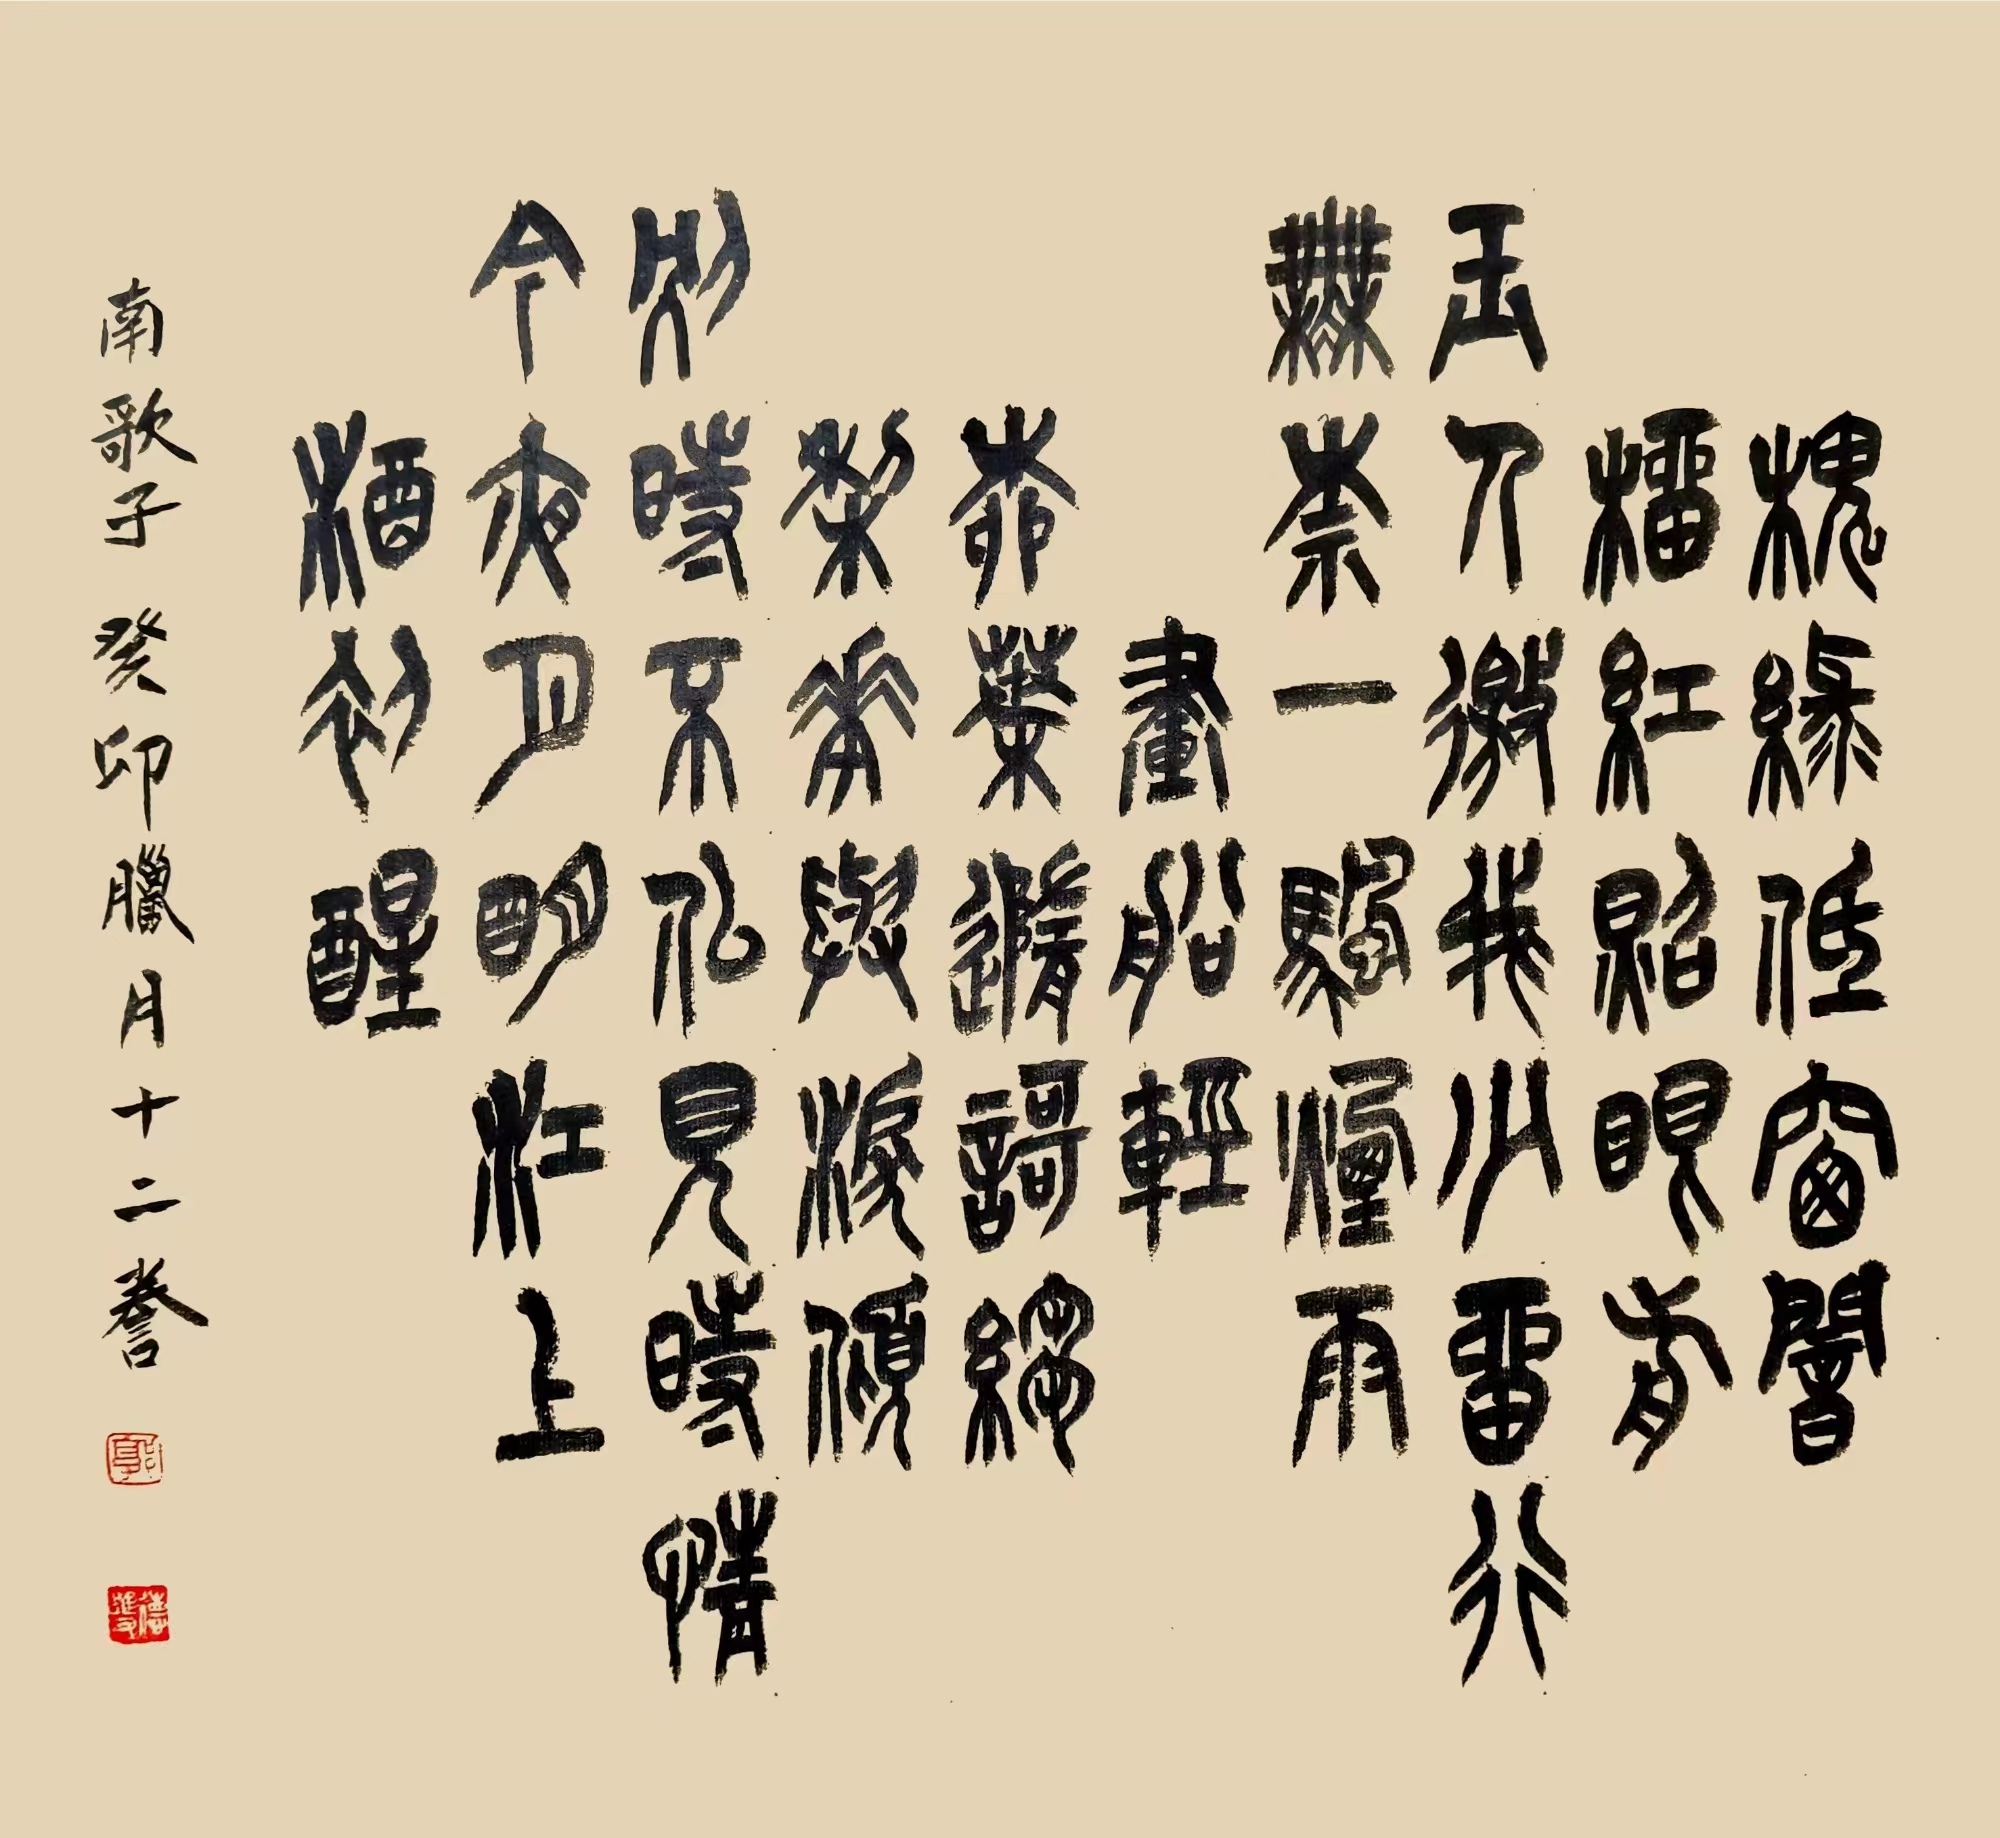 槐綠低窗闇
榴紅照眼
玉人邀我少留行
無奈一颿煙雨
畫船輕
柳葉隨謌縐
梨花與淚傾
別時不似見時情
今夜月明江上
酒初醒
南歌子 癸卯臘月十二誊
郭